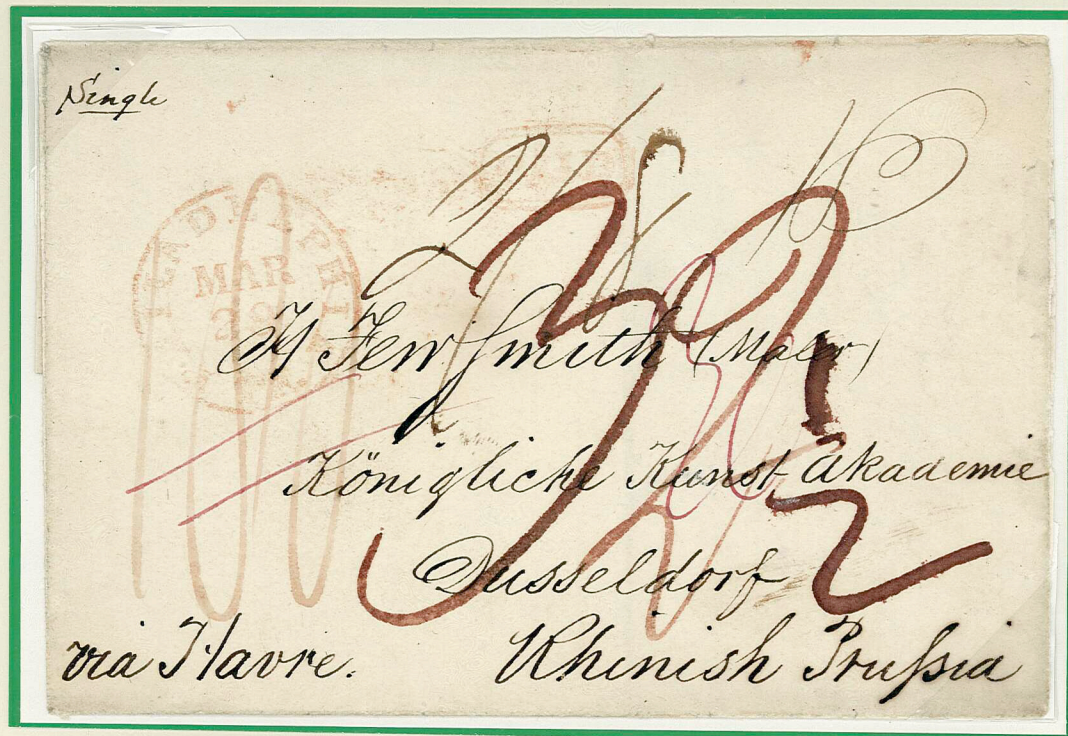 Single
MAR
H Few Smith (Maler)
Königliche Kunst-Akademie
Dusseldorf
via Havre.
Rhinish Prussia